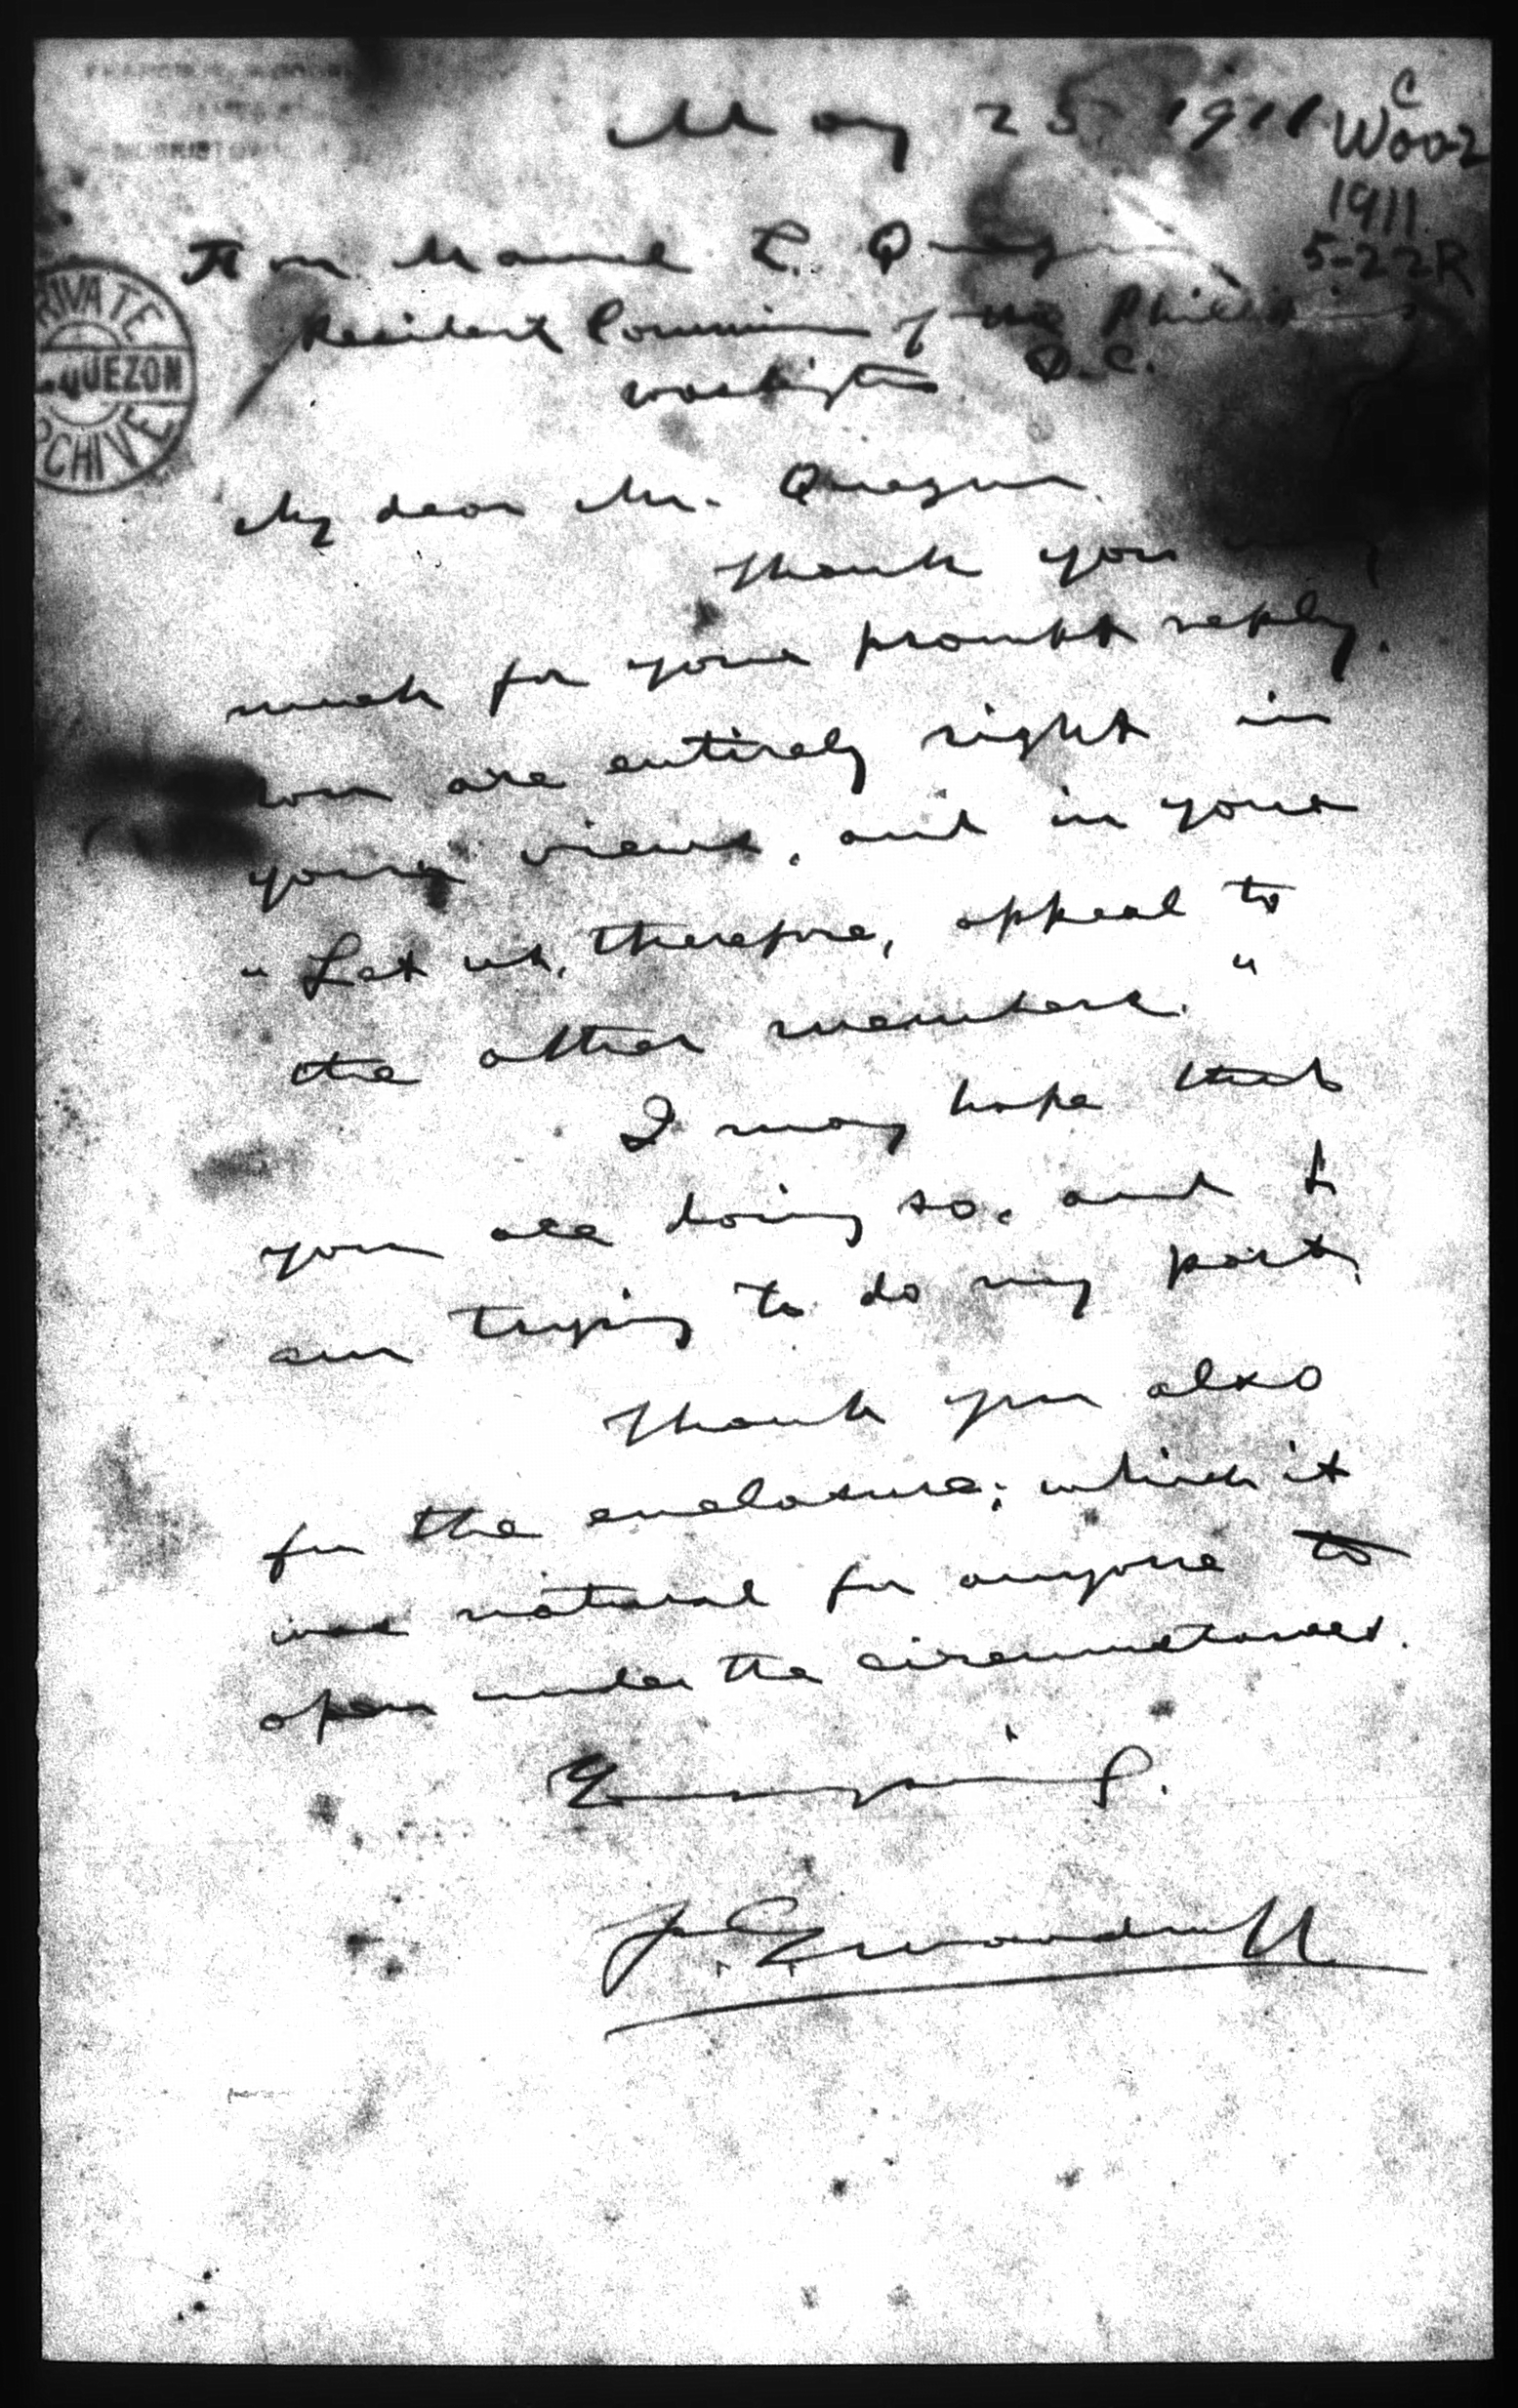 May 25 1911
C
Woo2
1911
5-22R
Hon Manuel L. Quezon
Resident Commissioner of the Philippines
Washington D.C.
PRIVATE
QUEZON
ARCHIVE
My dear Mr. Quezon.
Thank you very
much for your prompt reply.
You are entirely right in
your views, and in your
"Let us, therefore, appeal to
the other members."
I may hope that
you are doing so, and I
am trying to do my part.
Thank you also
for the enclosure; which it
was natural for anyone to
open under the circumstances.
F. E. Woodruff